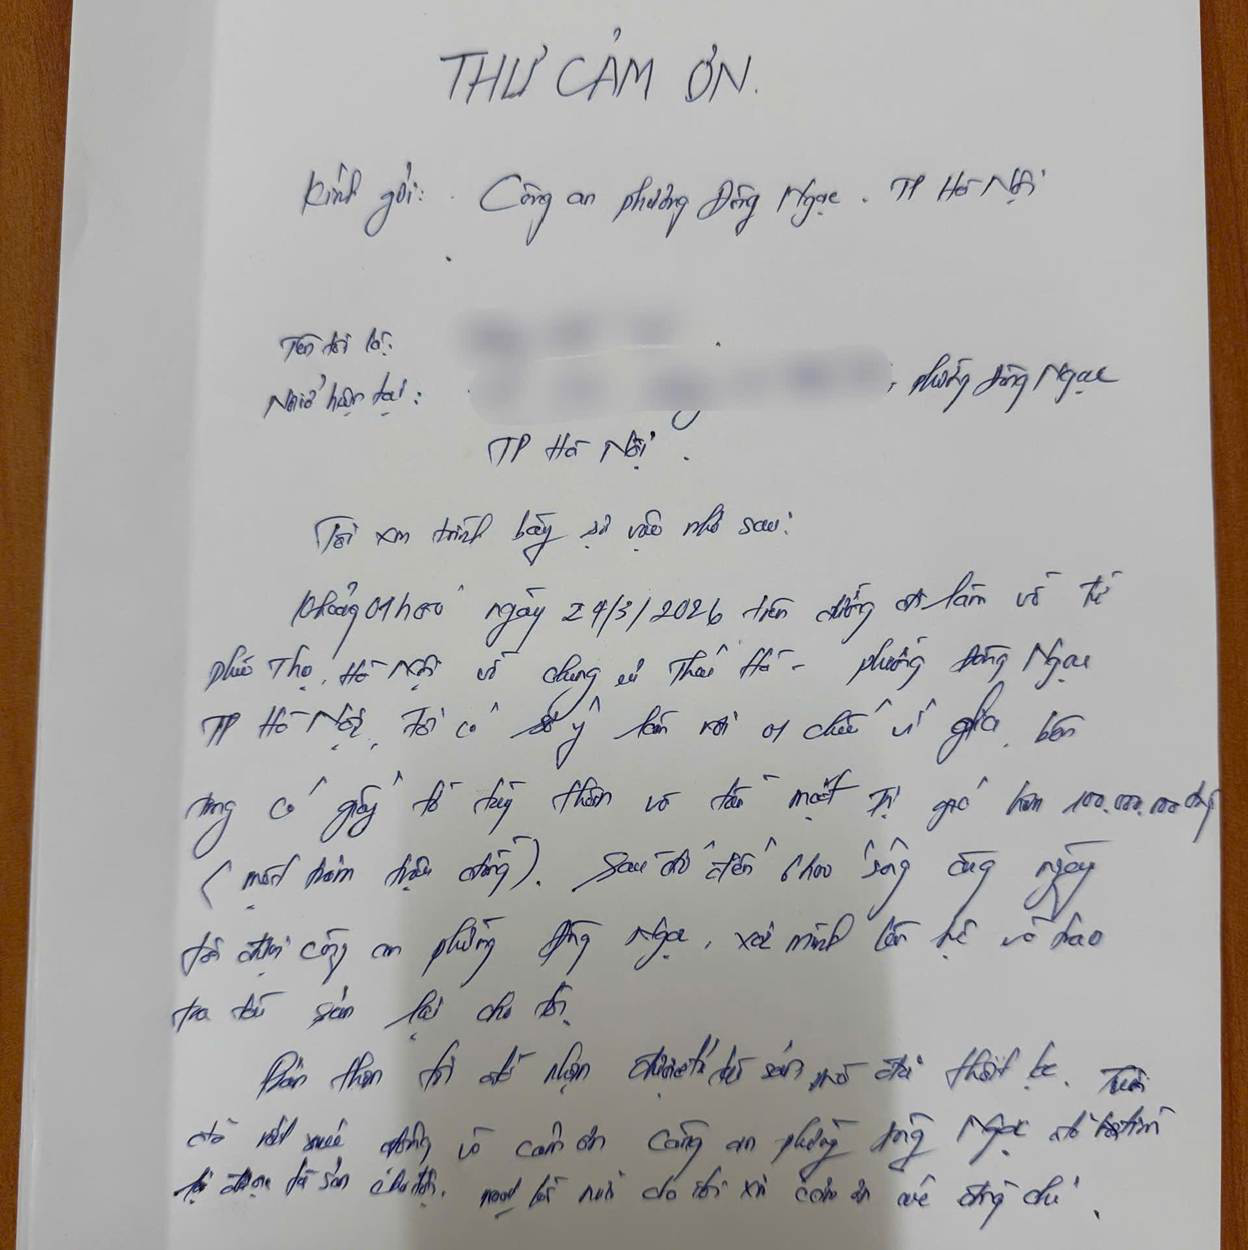 THƯ CẢM ƠN.
Kính gửi: Công an phường Đông Ngạc. TP Hà Nội
Tên tôi là:
Nơi ở hiện tại: , phường Đông Ngạc
TP Hà Nội.
Tôi xin trình bày sự việc như sau:
Khoảng 01h00 ngày 24/3/2026 trên đường đi làm về từ
phú Thọ, Hà Nội về chung cư Thái Hà - phường Đông Ngạc
TP Hà Nội, tôi có sơ ý làm rơi 01 chiếc ví giả, bên
trong có giấy tờ tùy thân và tiền mặt trị giá hơn 100.000.000 đồng
(một trăm triệu đồng). Sau đó đến 6h00 sáng cùng ngày
tôi được công an phường Đông Ngạc, xác minh liên hệ và trao
trả tài sản lại cho tôi.
Bản thân tôi đã nhận được tài sản mà đã thất lạc. Tôi
rất xúc động và cảm ơn công an phường Đông Ngạc đã
tài sản cho tôi. một lần nữa cho tôi xin cảm ơn các đồng chí.